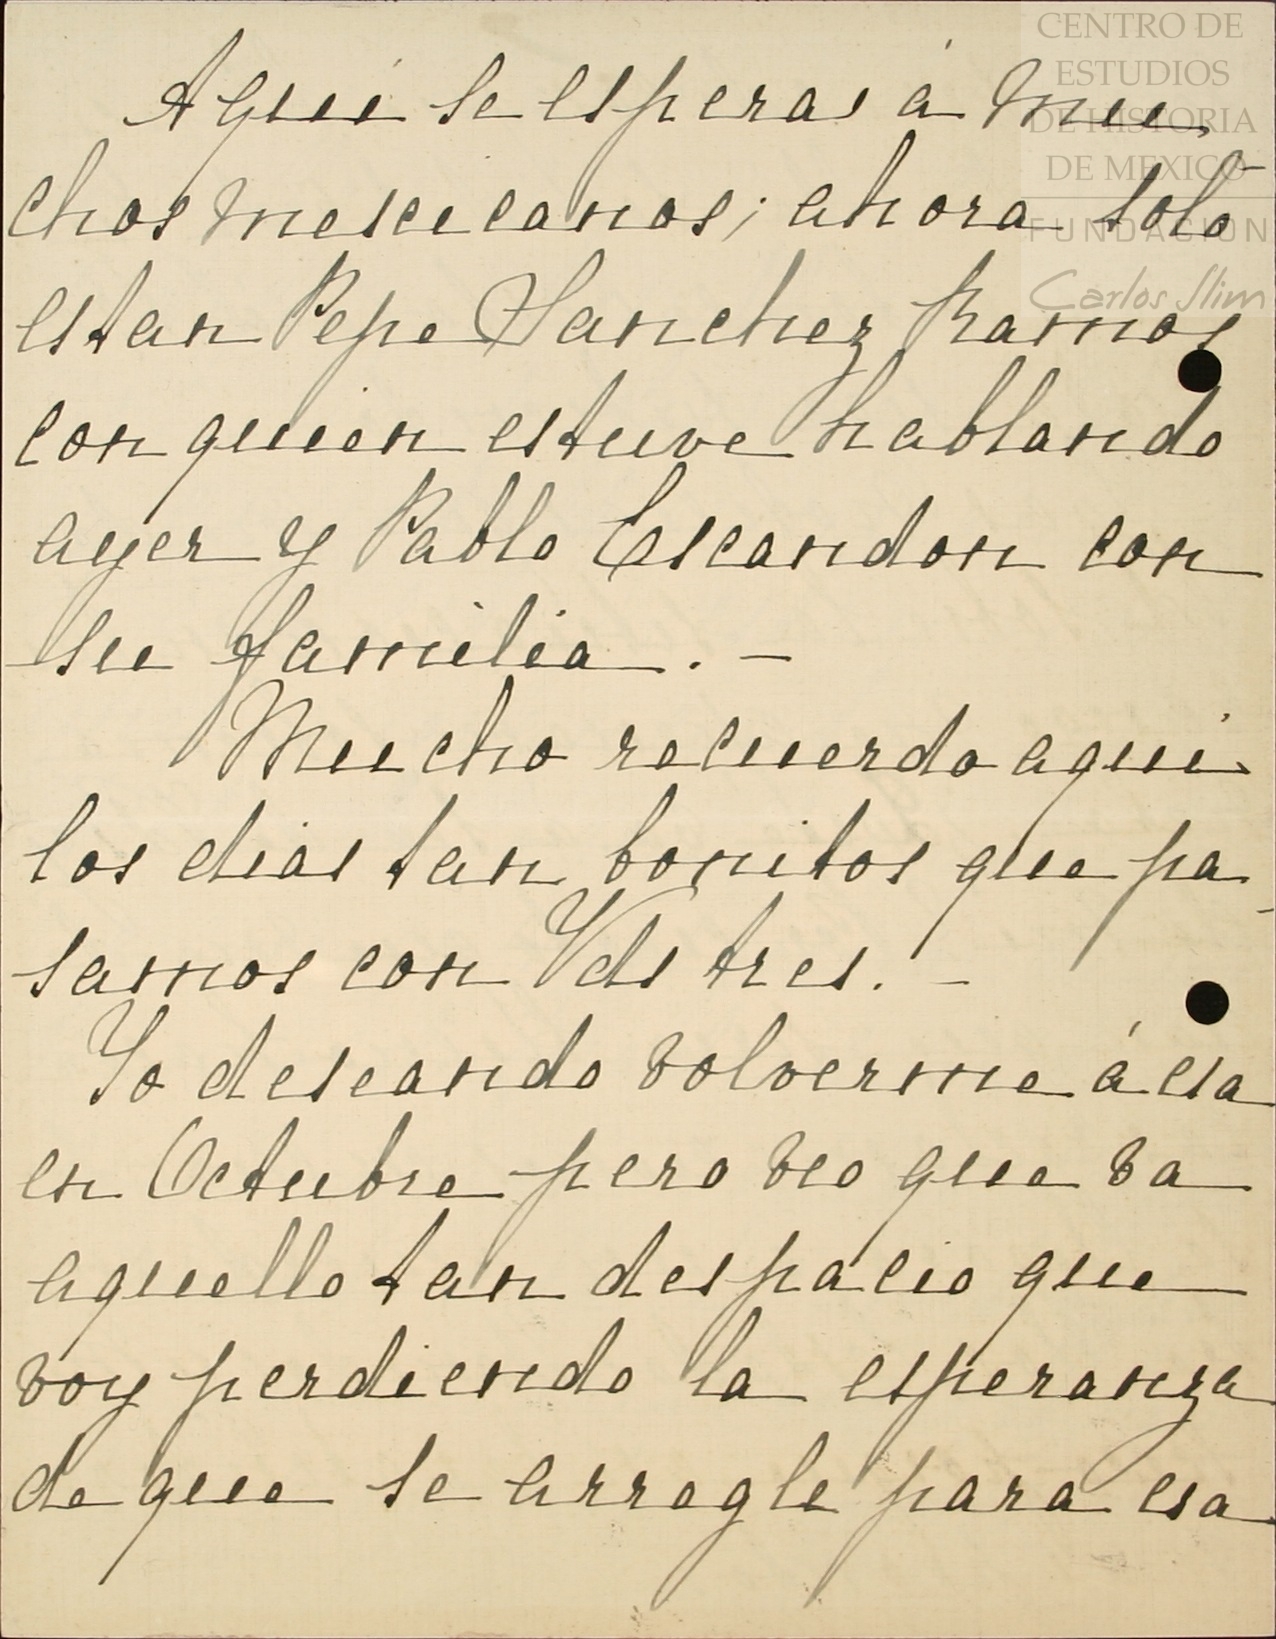 CENTRO DE
ESTUDIOS
DE HISTORIA
DE MEXICO
FUNDACION
Carlos Slim
Aquí se esperas á mu
chos mexicanos; ahora solo
estan Pepe Sanchez Ramos
con quien estuve hablando
ayer y Pablo Escandon con
su familia. —
Mucho recuerdo aqui
los dias tan bonitos que pa-
samos con Vds tres. —
Yo deseando volverme á esa
en Octubre pero veo que va
aquello tan despacio que
voy perdiendo la esperanza
de que se arregle para esa